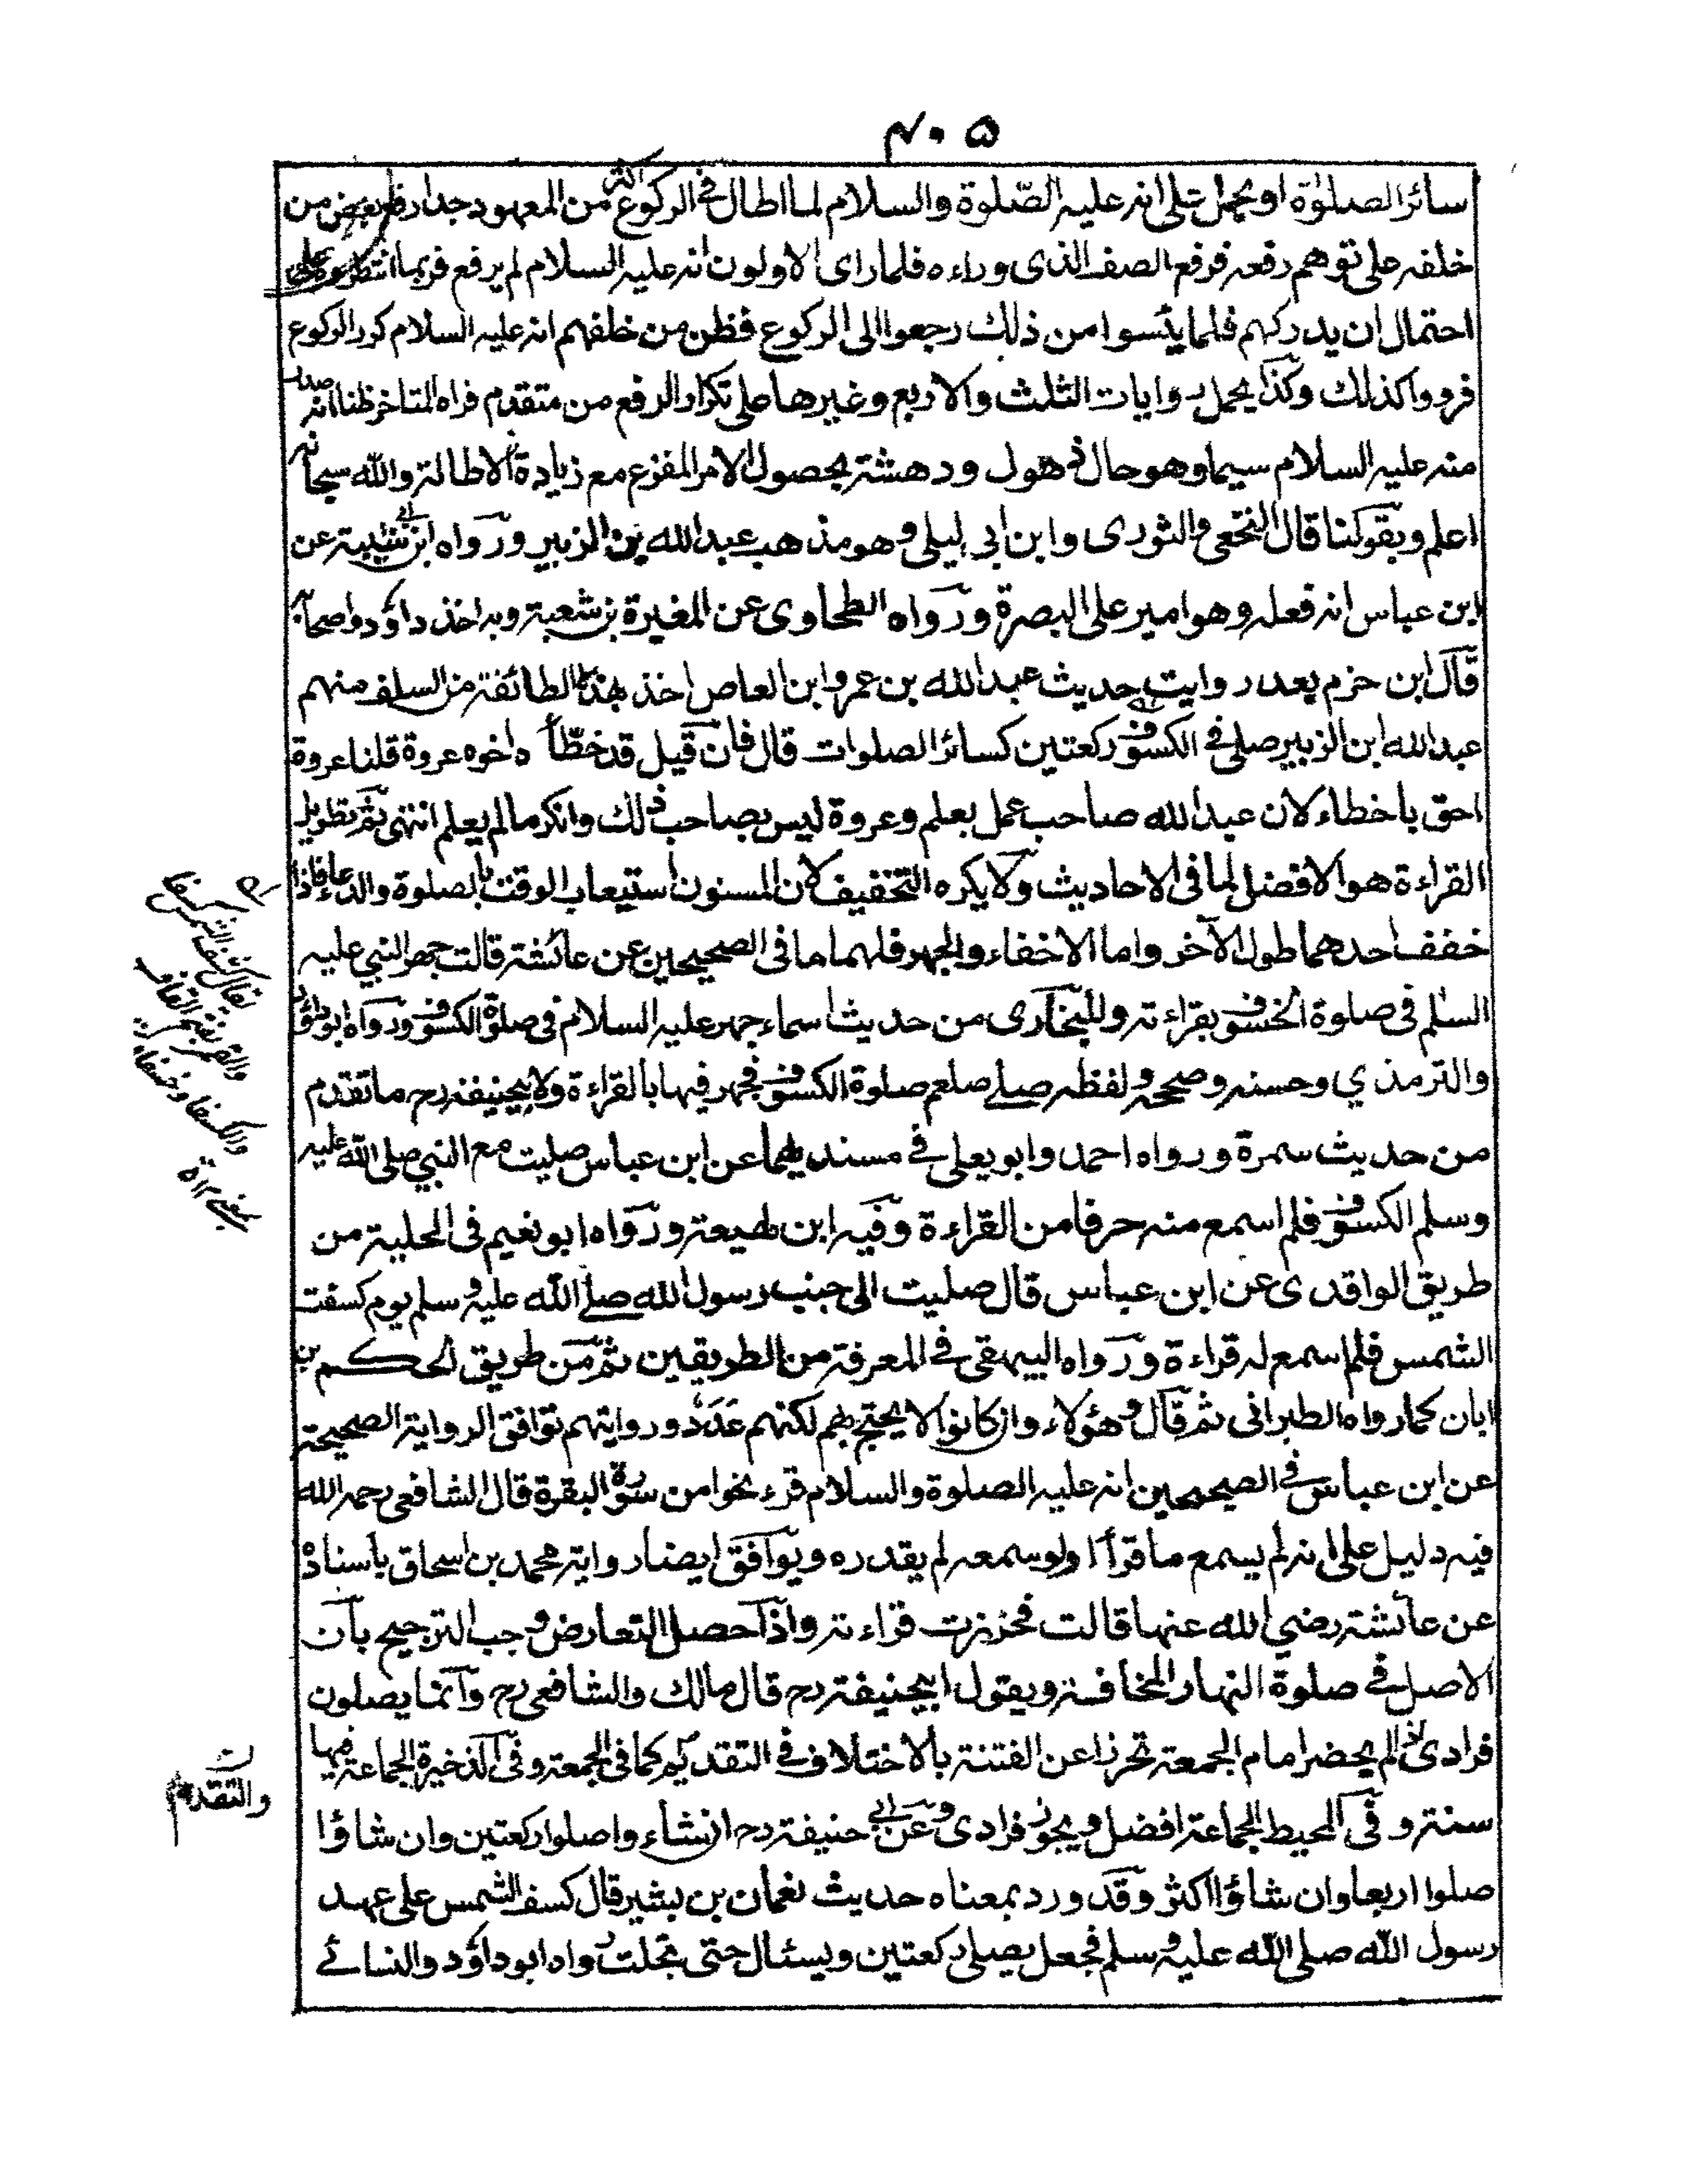 ۴۰۵
سائر الصلوٰة او يحمل على انه عليه الصّلوة والسلام لما اطال فى الركوع اكثر من المعهود جدا رفع بعض من
خلفه على توهم رفعه فرفع الصف الذى وراءه فلما راى الاولون انه عليه السلام لم يرفع فربما انتظروه على
احتمال ان يدركهم فلما يئسوا من ذلك رجعوا الى الركوع فظن من خلفهم انه عليه السلام كرر الركوع
فرووا كذلك وكذا يحمل روايات الثلث والاربع وغيرها على تكرار الرفع من متقدم فراه المتاخر ظنا انه صدر
منه عليه السلام سيما وهو حال ذهول ودهشة بحصول الامر المفزع مع زيادة الاطالة والله سبحانه
اعلم وبقولنا قال النخعى والثورى وابن ابى ليلى وهو مذهب عبد الله بن الزبير ورواه ابن ابى شيبة عن
ابن عباس انه فعله وهو امير على البصرة ورواه الطحاوى عن المغيرة بن شعبة وبه اخذ داؤد واصحابه
قال ابن حزم بعد روايت حديث عبد الله بن عمرو ابن العاص اخذ بهذا الطائفة من السلف منهم
عبد الله ابن الزبير صلى فى الكسوف ركعتين كسائر الصلوات قال فان قيل قد خطّأ داخوه عروة قلنا عروة
احق باخطاء لان عبد الله صاحب عمل بعلم وعروة ليس بصاحب ذلك وانكر ما لم يعلم انتهى ثم تطويل
القراءة هو الافضل لما فى الاحاديث ولا يكره التخفيف لان المسنون استيعاب الوقت بالصلوة والدعاء فاذا
خفف احدهما طول الآخر واما الاخفاء والجهر فلهما ما فى الصحيحين عن عائشة قالت جهر النبي عليه
السلم فى صلوة الخسوف بقراءته وللبخارى من حديث اسماء جهر عليه السلام فى صلوة الكسوف ورواه ابو داؤد
والترمذي وحسنه وصححه ولفظه صلے صلعم صلوة الكسوف فجهر فيها بالقراءة ولابيحنيفة رح ما تقدم
من حديث سمرة ورواه احمد وابو يعلى فى مسنديهما عن ابن عباس صليت مع النبي صلى الله عليه
وسلم الكسوف فلم اسمع منه حرفا من القراءة وفيه ابن لهيعة ورواه ابو نعيم فى الحلية من
طريق الواقدى عن ابن عباس قال صليت الى جنب رسول الله صلے الله عليه وسلم يوم كسفت
الشمس فلم اسمع له قراءة ورواه البيهقى فى المعرفة من الطريقين ثم من طريق الحكم بن
ابان كما رواه الطبرانى ثم قال وهؤلاء وان كانوا لا يحتج بهم لكنهم عدد وروايتهم توافق الرواية الصحيحة
عن ابن عباس فى الصحيحين انه عليه الصلوة والسلام قرء نحوا من سورة البقرة قال الشافعى رحمه الله
فيه دليل على انه لم يسمع ما قرأ اولو سمعه لم يقدره ويوافق ايضا رواية محمد بن اسحاق باسناده
عن عائشة رضي الله عنها قالت فحزرت قراءته واذا حصل التعارض وجب الترجيح بان
الاصل فى صلوة النهار المخافتة وبقول ابيحنيفة رح قال مالك والشافعى رح وانما يصلون
فرادى اذا لم يحضر امام الجمعة تحرزا عن الفتنة بالاختلاف فى التقديم كما فى الجمعة وفى الذخيرة الجماعة فيها
سنة وفى المحيط الجماعة افضل ويجوز فرادى وعن ابى حنيفة رح ان شاء واصلوا ركعتين وان شاؤا
صلوا اربعا وان شاؤا اكثر وقد ورد بمعناه حديث نعمان بن بشير قال كسف الشمس على عهد
رسول الله صلى الله عليه وسلم فجعل يصلى ركعتين ويسئال حتى تجلت رواه ابو داؤد والنسائے
والتقدم